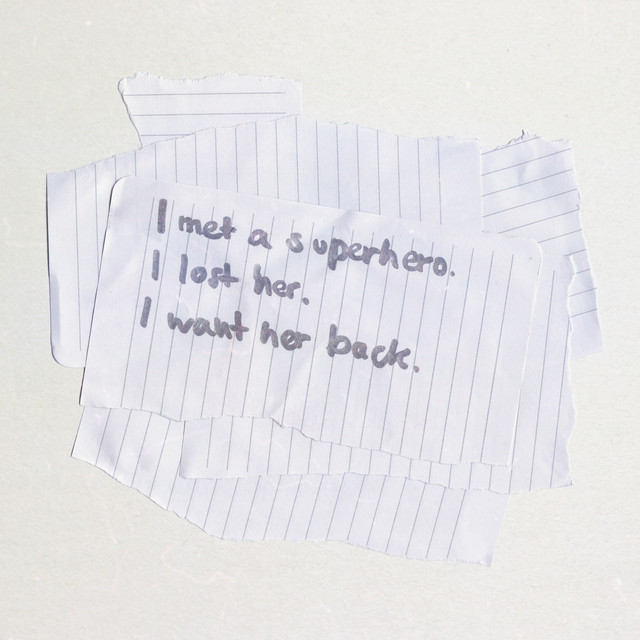 I met a superhero.
I lost her.
I want her back.